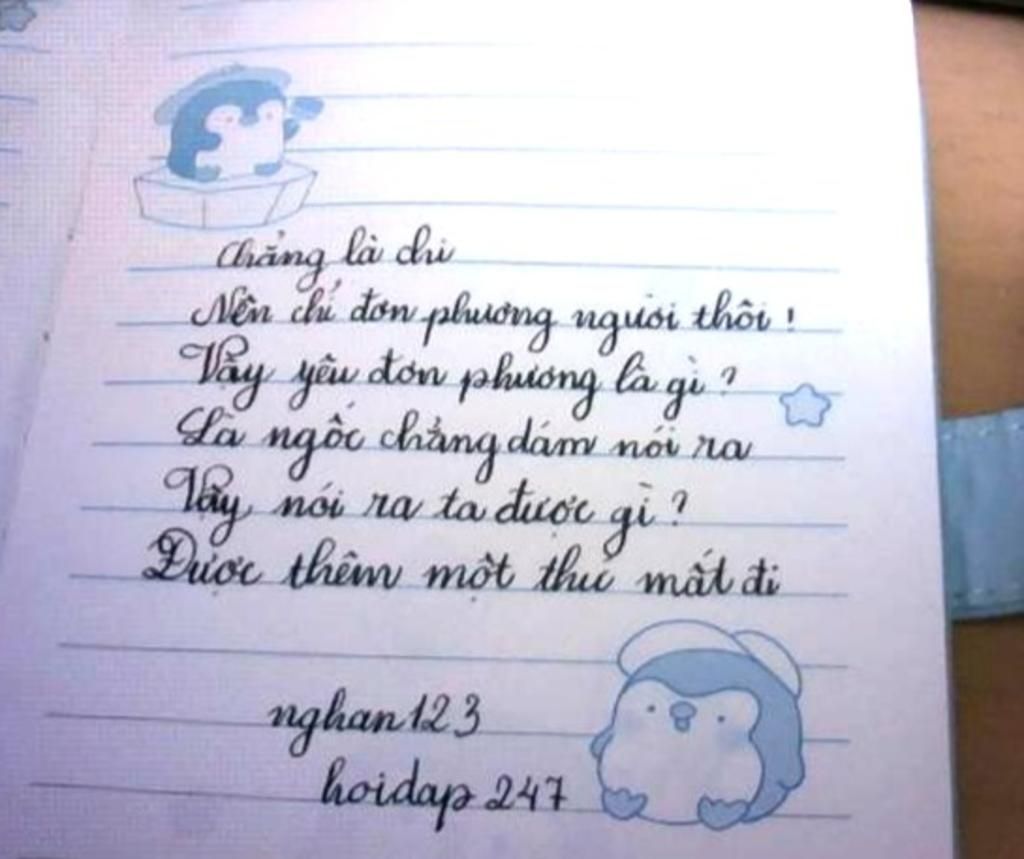 Chẳng là chi
Nên chỉ đơn phương người thôi !
Vậy yêu đơn phương là gì ?
Là ngốc chẳng dám nói ra
Vậy nói ra ta được gì ?
Được thêm một thứ mất đi
nghan123
hoidap 247